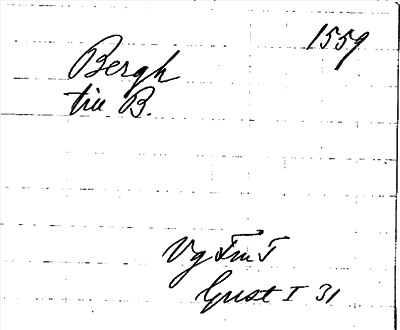 1559
Bergh
till B.
Vg FmT
Gust I 31